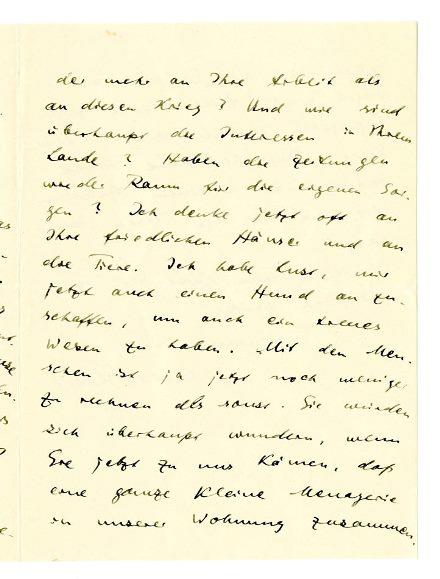 der mehr an Ihre Arbeit als
an diesen Krieg? Und wie sind
überhaupt die Interessen in Ihrem
Lande? Haben die Zeitungen
wieder Raum für die eigenen Sor-
gen? Ich denke jetzt oft an
Ihre friedlichen Häuser und an
die Tiere. Ich habe Lust, mir
jetzt auch einen Hund an zu-
schaffen, um auch ein treues
Wesen zu haben. Mit den Men-
schen ist ja jetzt noch weniger
zu rechnen als sonst. Sie würden
sich überhaupt wundern, wenn
Sie jetzt zu uns kämen, daß
eine ganze kleine Menagerie
in unserer Wohnung zusammen.